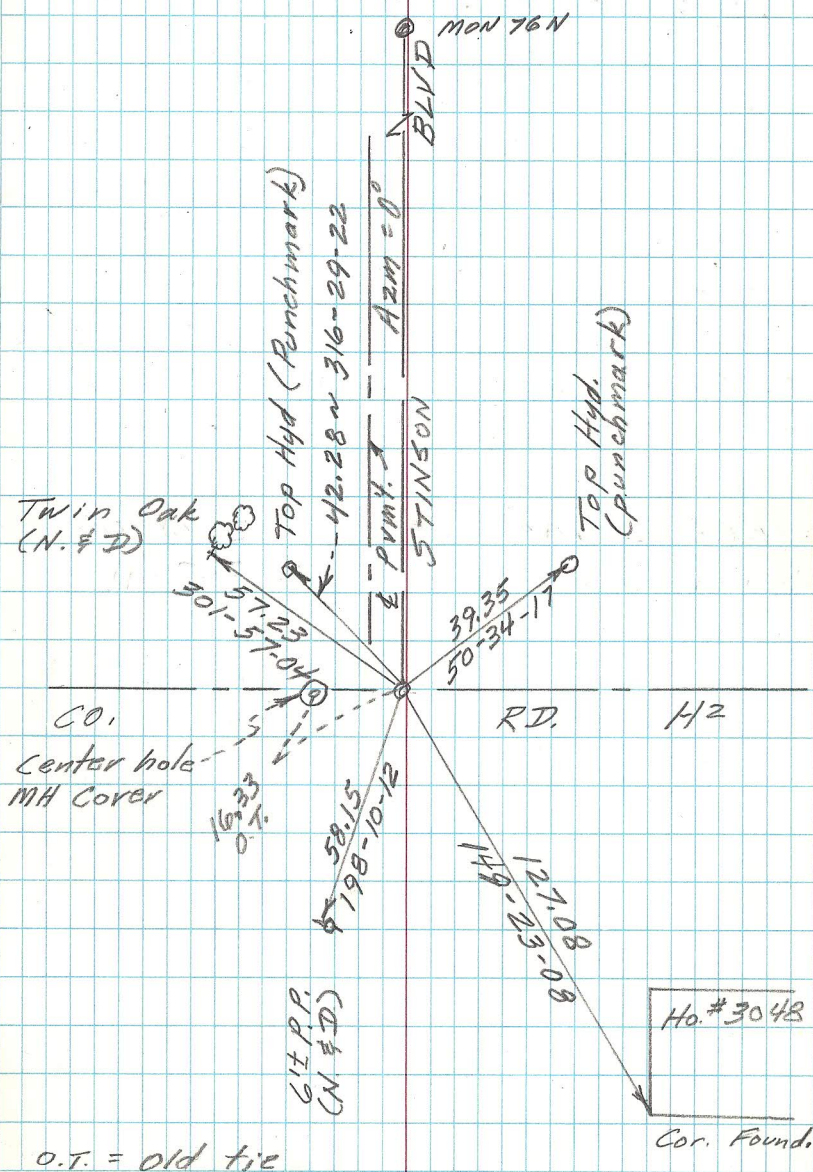 MON 76N
BLVD
Azm = 0°
℄ pvmt.
STINSON
Top Hyd (Punchmark)
42.28 ~ 316-29-22
Top Hyd.
(punchmark)
Twin Oak
(N. & D)
57.23
301-57-04
39.35
50-34-17
CO. RD. H2
Center hole
MH Cover
16.33
O.T.
58.15
198-10-12
121.08
149-23-08
P.P.
(N. & D)
Ho. #3048
Cor. Found.
O.T. = Old tie